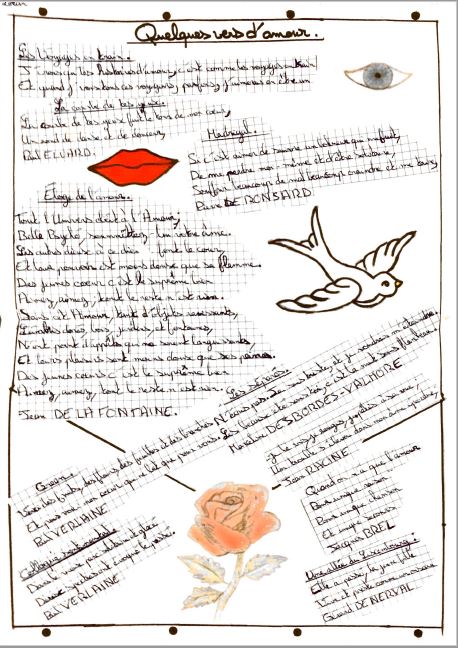 Quelques vers d'amour.
Les Voyages en train.
J'crois qu'les histoires d'amour, c'est comme les voyages en train
Et quand j'vois tous ces voyageurs, parfois j'aimerais en être un
La courbe de tes yeux.
La courbe de tes yeux fait le tour de mon cœur,
Un rond de danse et de douceur,
Paul ELUARD.
Madrigal.
Si c'est aimer de
De me perdre moi-même et d'être solitaire,
Souffrir beaucoup de mal, beaucoup craindre et me taire,
Pierre DE RONSARD
Éloge de l'amour.
Tout l'Univers obéit à l'Amour ;
Belle Psyché, soumettez-lui votre âme.
Les autres dieux à ce dieu font la cour,
Et leur pouvoir est moins doux que sa flamme.
Des jeunes cœurs c'est le suprême bien
Aimez, aimez, tout le reste n'est rien.
Sans cet Amour, tant d'objets ravissants,
Lambris dorés, bois, jardins, et fontaines,
N'ont point d'appâts qui ne soient languissants,
Et leurs plaisirs sont moins doux que ses peines.
Des jeunes cœurs c'est le suprême bien
Aimez, aimez, tout le reste n'est rien.
Jean DE LA FONTAINE.
Les Séparés.
N'écris pas. Je suis triste, et je voudrais m'éteindre.
Les beaux étés sans toi, c'est la nuit sans flambeau.
Marceline DESBORDES-VALMORE
Jean RACINE
Green.
Voici des fruits, des fleurs, des feuilles et des branches
Et puis voici mon cœur qui ne bat que pour vous.
Paul VERLAINE
Colloque sentimental.
Dans le vieux parc solitaire et glacé
Deux
Paul VERLAINE
Quand on n'a que l'amour
Jacques BREL
Une allée du Luxembourg.
Elle a passé, la jeune fille
Vive et preste comme un oiseau
Gérard DE NERVAL